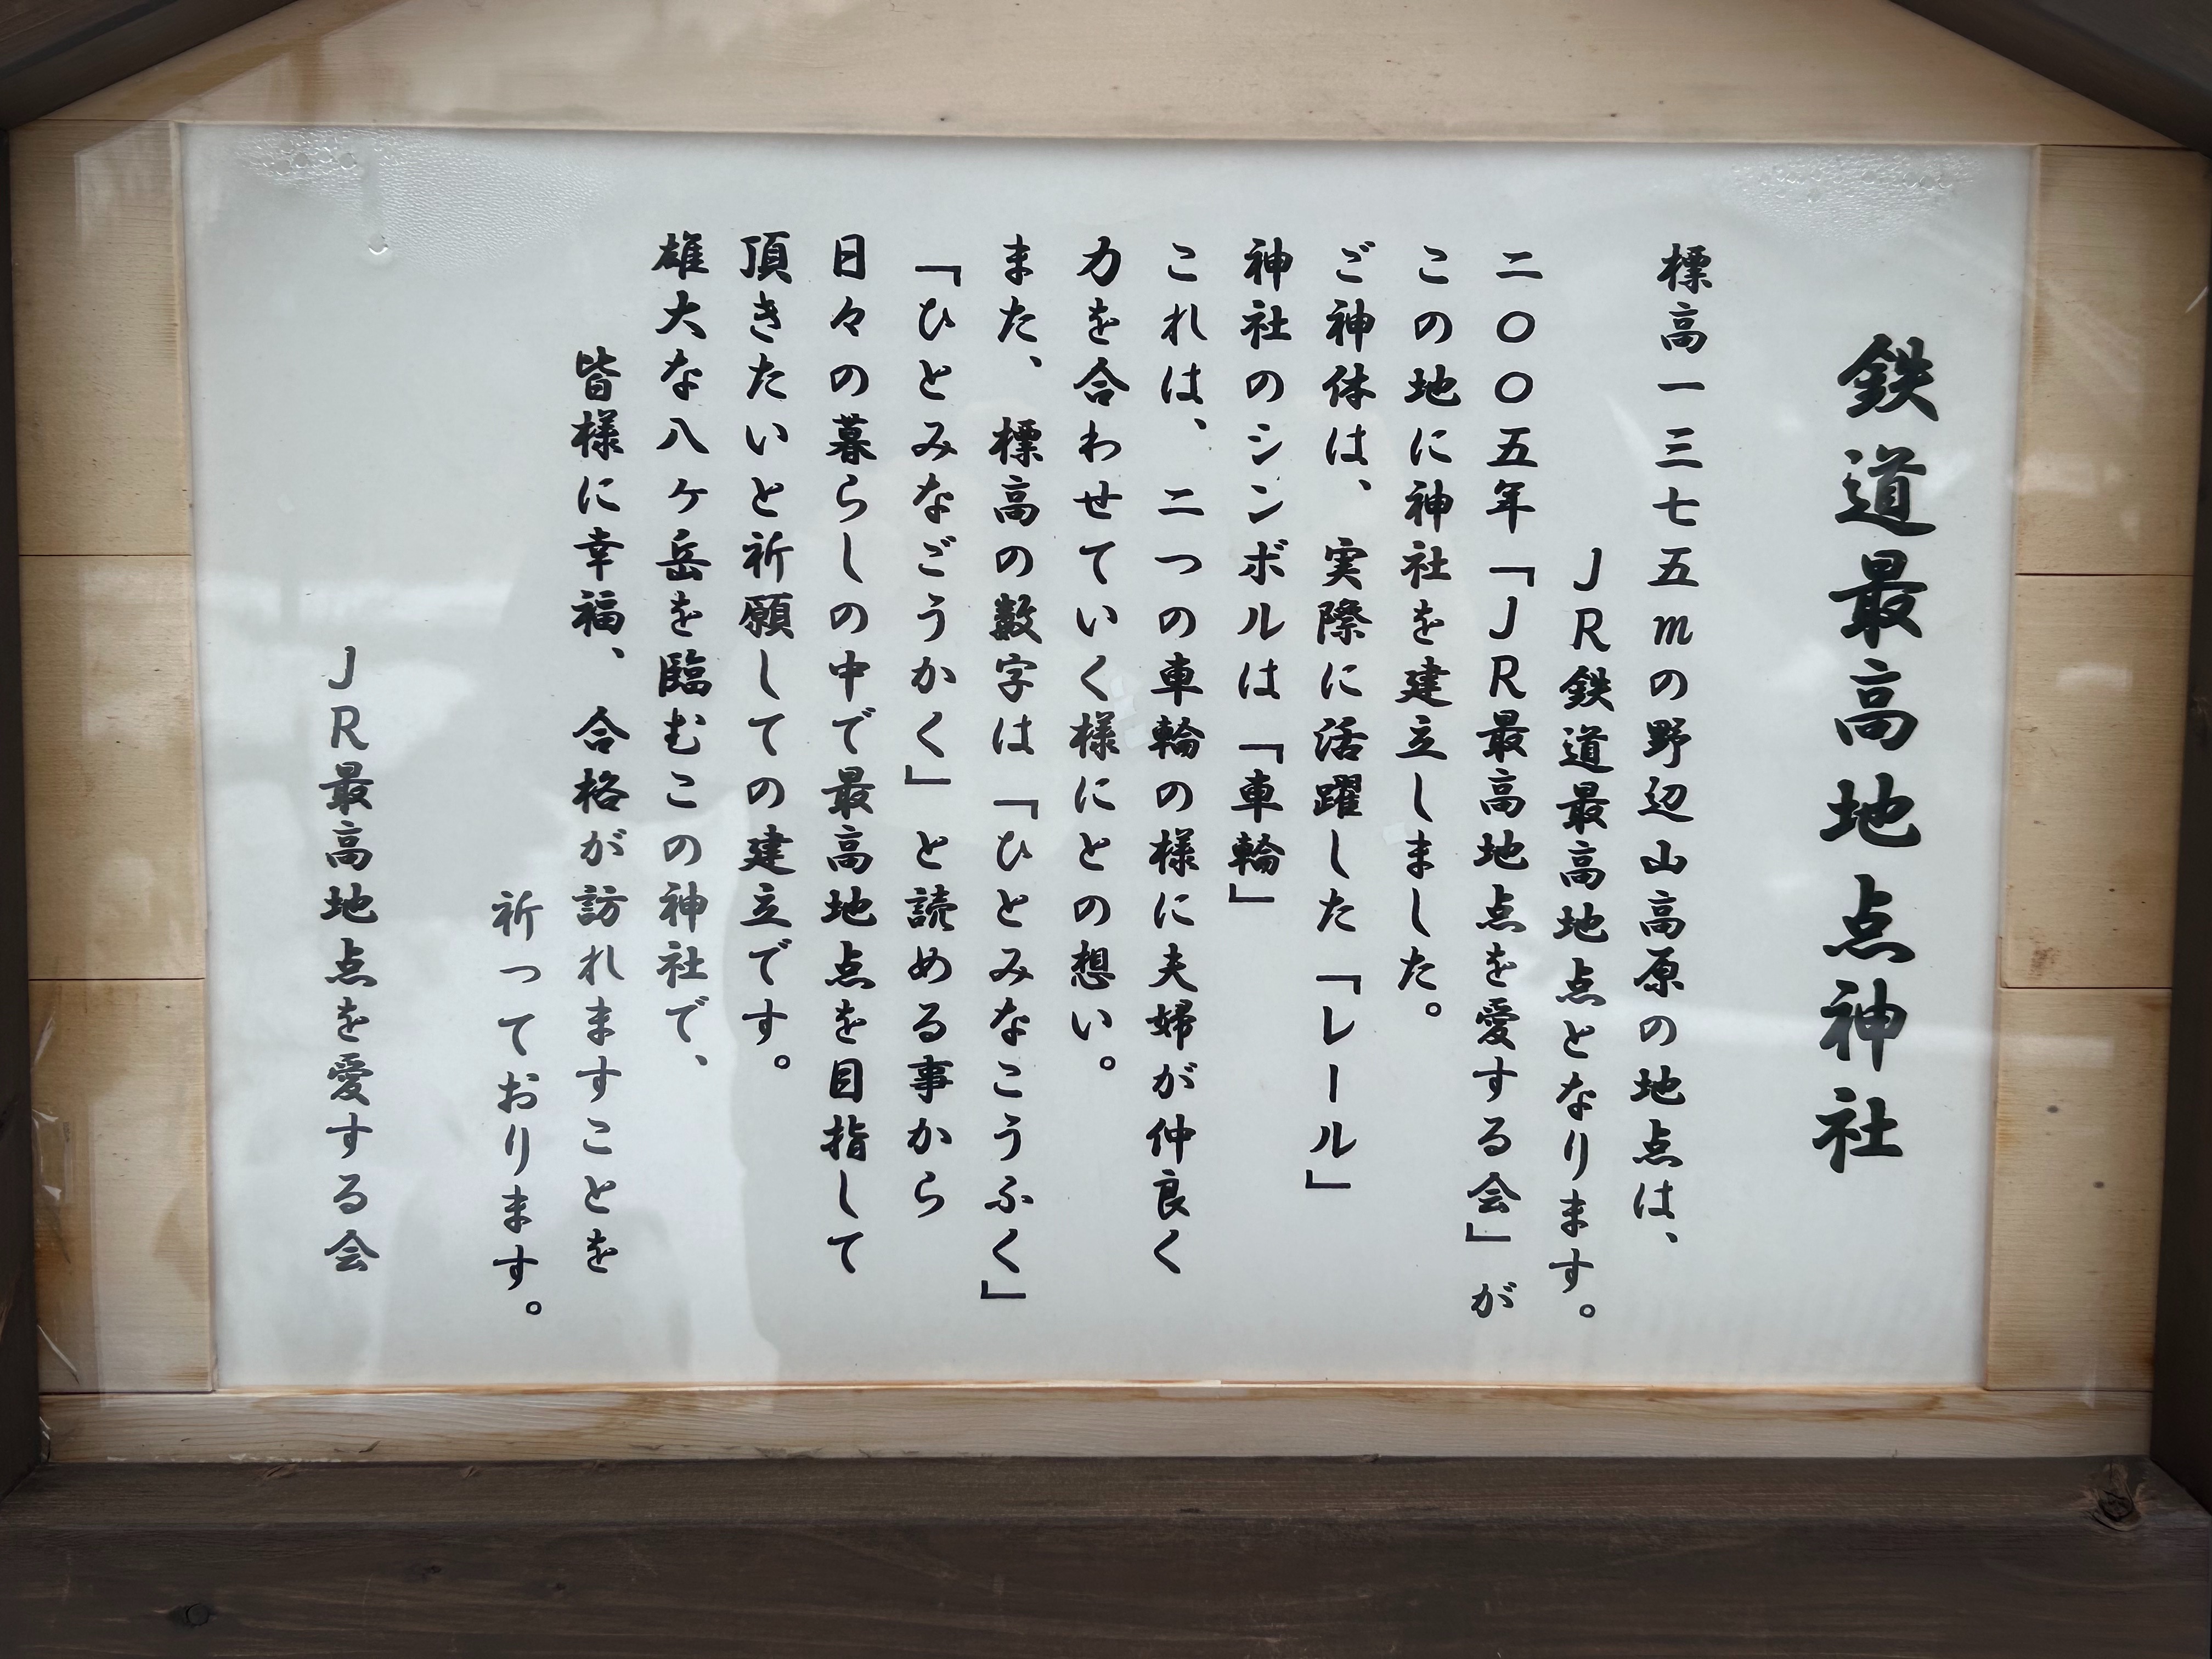 鉄道最高地点神社
標高一三七五mの野辺山高原の地点は、
JR鉄道最高地点となります。
二〇〇五年「JR最高地点を愛する会」が
この地に神社を建立しました。
ご神体は、実際に活躍した「レール」
神社のシンボルは「車輪」
これは、二つの車輪の様に夫婦が仲良く
力を合わせていく様にとの想い。
また、標高の数字は「ひとみなこうふく」
「ひとみなごうかく」と読める事から
日々の暮らしの中で最高地点を目指して
頂きたいと祈願しての建立です。
雄大な八ヶ岳を臨むこの神社で、
皆様に幸福、合格が訪れますことを
祈っております。
JR最高地点を愛する会